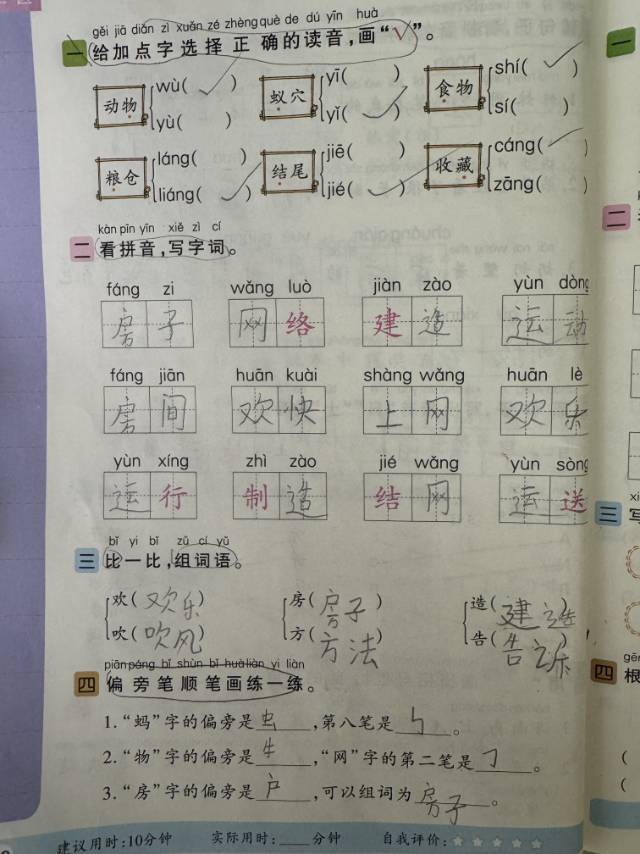 gěi jiā diǎn zì xuǎn zé zhèng què de dú yīn huà
一 给加点字选择正确的读音,画“√”。
wù( ✓ ) yī( ) shí( ✓ )
动物 蚁穴 食物
yù( ) yǐ( ✓ ) sí( )
láng( ) jiē( ) cáng( ✓ )
粮仓 结尾 收藏
liáng( ✓ ) jié( ✓ ) zāng( )
kàn pīn yīn xiě zì cí
二 看拼音,写字词。
fáng zi wǎng luò jiàn zào yùn dòng
房子 网络 建造 运动
fáng jiān huān kuài shàng wǎng huān lè
房间 欢快 上网 欢乐
yùn xíng zhì zào jié wǎng yùn sòng
运行 制造 结网 运送
bǐ yi bǐ zǔ cí yǔ
三 比一比,组词语。
欢(欢乐) 房(房子) 造(建造)
吹(吹风) 方(方法) 告(告诉)
piān páng bǐ shùn bǐ huà liàn yi liàn
四 偏旁笔顺笔画练一练。
1.“蚂”字的偏旁是虫,第八笔是㇉。
2.“物”字的偏旁是牜,“网”字的第二笔是㇆。
3.“房”字的偏旁是户,可以组词为房子。
建议用时:10分钟 实际用时:____分钟 自我评价:☆☆☆☆☆
一
二
三 写
xi
gēn
四 根